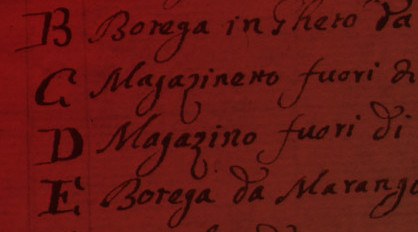 B Borega in Gheto da
C Magazineto fuori di
D Magazino fuori di
E Borega da Marango